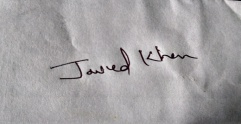 Javed Khan